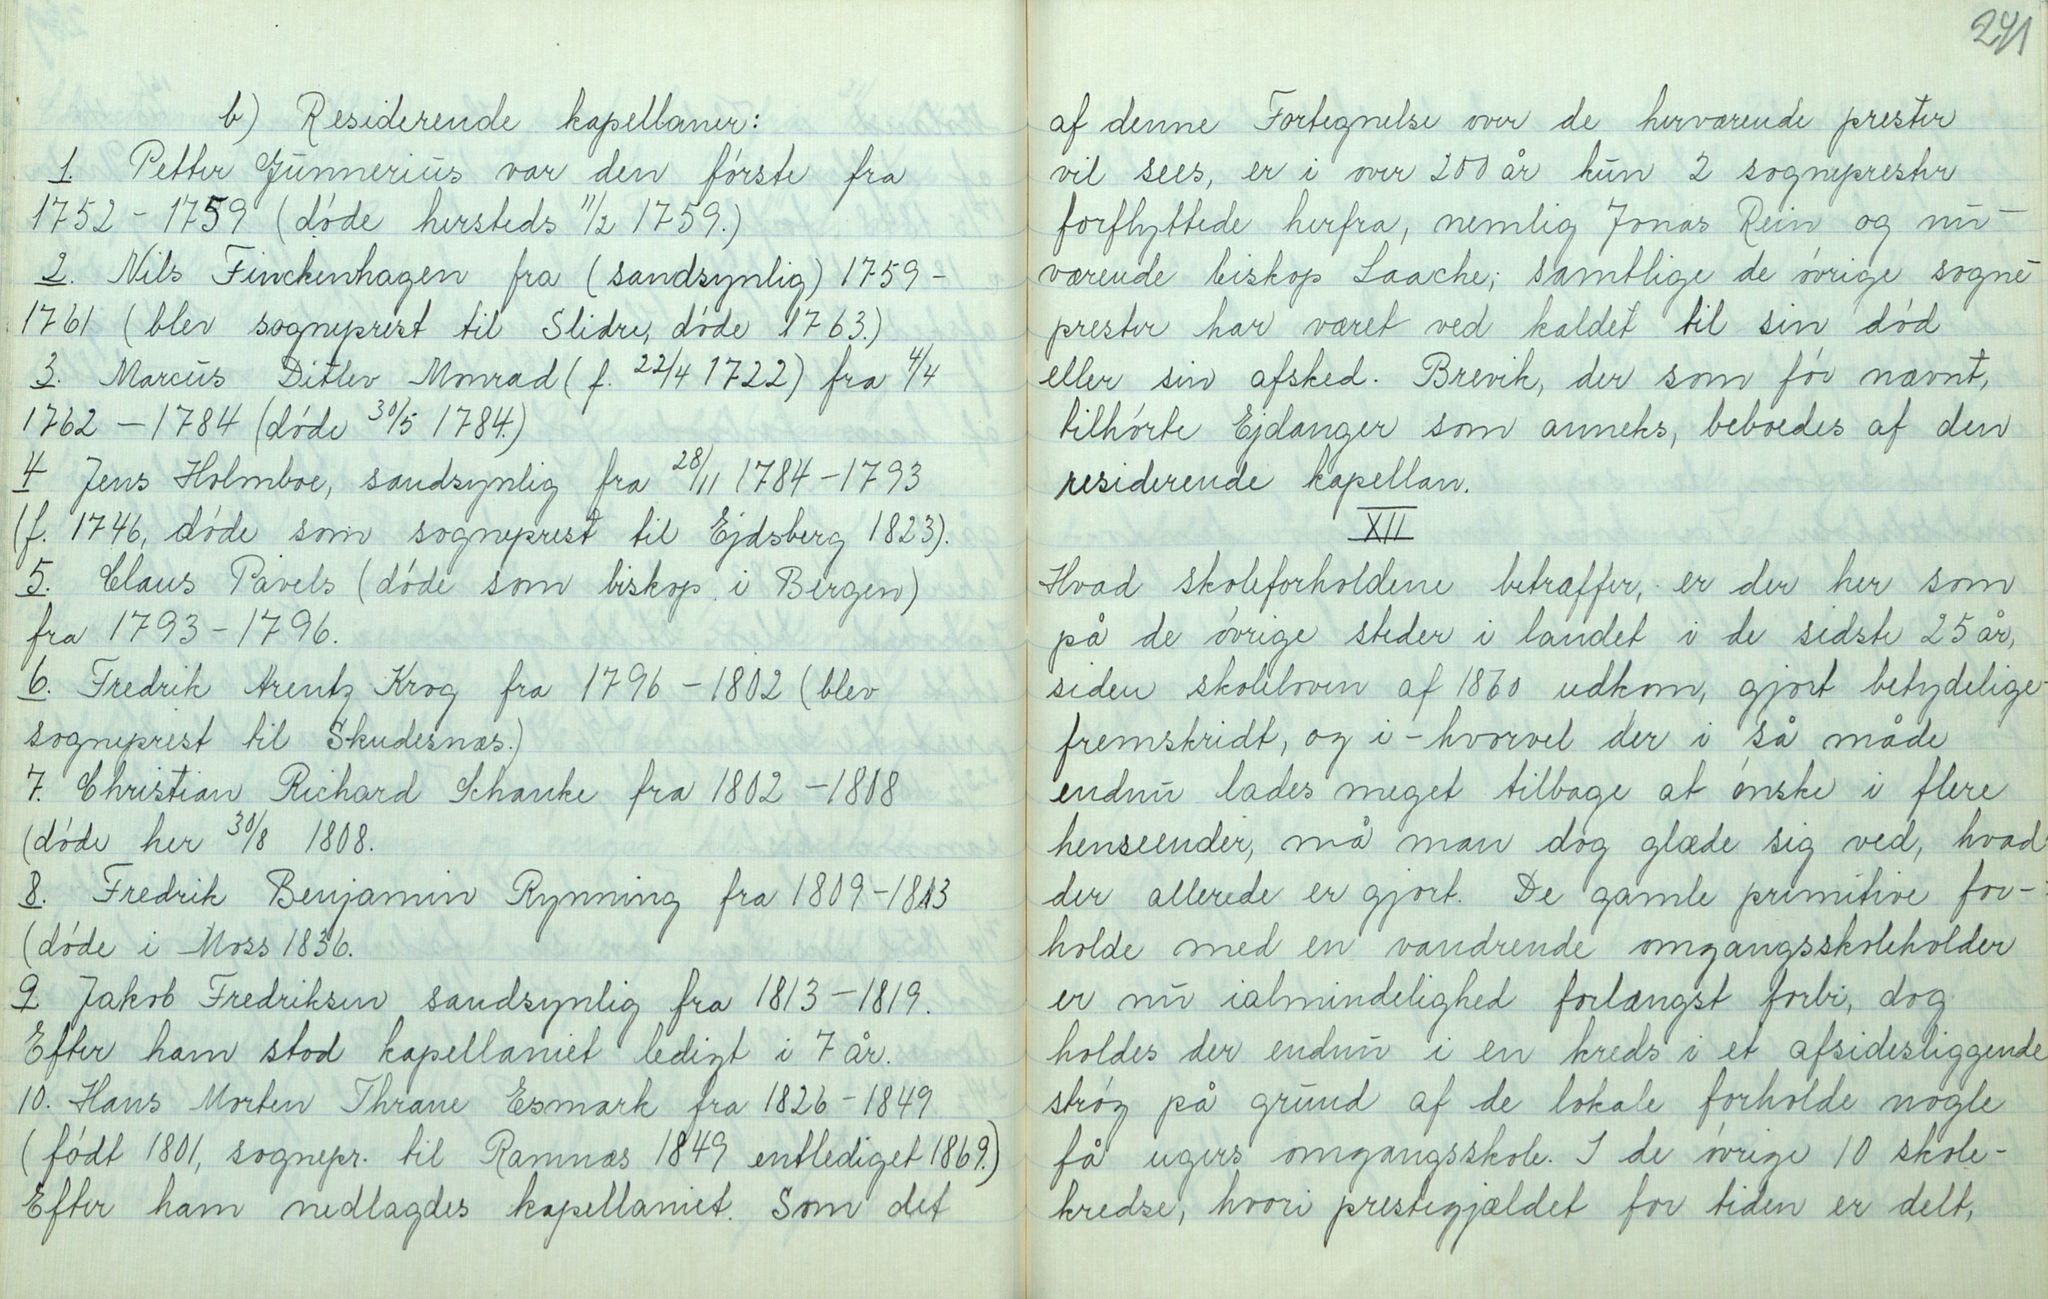 b) Residerende kapellaner:
1. Petter Gunnerius var den første fra
1752 - 1759 (døde hersteds 11/2 1759.)
2. Nils Finckenhagen fra (sandsynlig) 1759 -
1761 (blev sogneprest til Slidre, døde 1763.)
3. Marcus Ditlev Monrad (f. 22/4 1722) fra 4/4
1762 - 1784 (døde 30/5 1784.)
4 Jens Holmboe, sandsynlig fra 28/11 1784 - 1793
(f. 1746, døde som sogneprest til Ejdsberg 1823).
5. Claus Pavels (døde som biskop i Bergen)
fra 1793 - 1796.
6. Fredrik Arentz Krog fra 1796 - 1802 (blev
sogneprest til Skudesnæs.)
7. Christian Richard Schanke fra 1802 - 1808
(døde her 30/8 1808.
8. Fredrik Benjamin Rynning fra 1809 - 1813
(døde i Moss 1836.
9 Jakob Fredriksen sandsynlig fra 1813 - 1819.
Efter ham stod kapellaniet ledigt i 7 år.
10. Hans Morten Thrane Esmark fra 1826 - 1849
(født 1801, sognepr. til Ramnæs 1849 entlediget 1869.)
Efter ham nedlagdes kapellaniet. Som det
241
af denne Fortegnelse over de herværende prester
vil sees, er i over 200 år kun 2 sogneprester
forflyttede herfra, nemlig Jonas Rein og nu-
værende biskop Laache; samtlige de øvrige sogne-
prester har været ved kaldet til sin død
eller sin afsked. Brevik, der som før nævnt,
tilhørte Ejdanger som anneks, beboedes af den
residerende kapellan.
XII
Hvad skoleforholdene betræffer, er der her som
på de øvrige steder i landet i de sidste 25 år,
siden skoleloven af 1860 udkom, gjort betydelige
fremskridt, og i-hvorvel der i så måde
endnu lades meget tilbage at ønske i flere
henseender, må man dog glæde sig ved, hvad
der allerede er gjort. De gamle primitive for-
holde med en vandrende omgangsskoleholder
er nu ialmindelighed forlængst forbi, dog
holdes der endnu i en kreds i et afsidesliggende
strøg på grund af de lokale forholde nogle
få ugers omgangsskole. I de øvrige 10 skole-
kredse, hvori prestegjældet for tiden er delt,